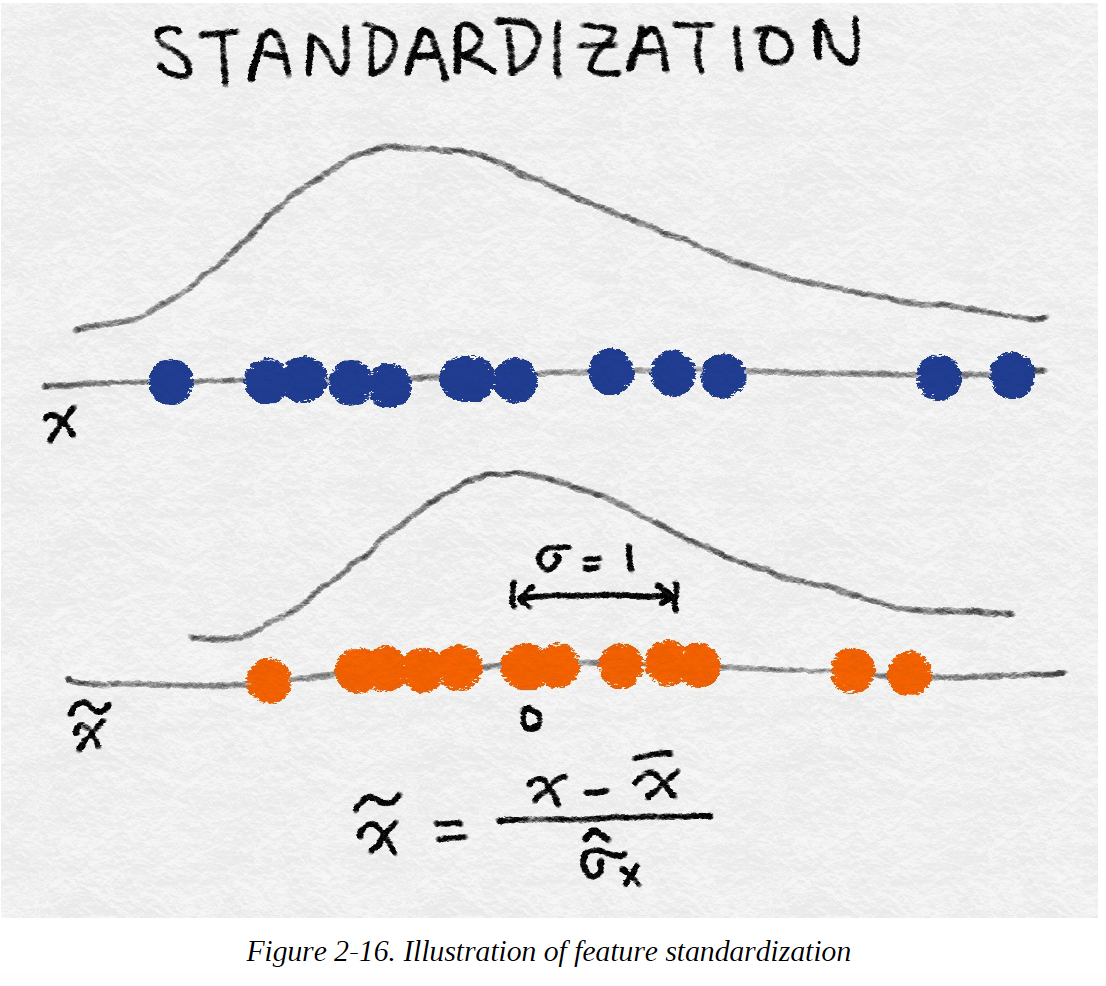 STANDARDIZATION
x
σ = 1
x̃
0
x̃ = (x - x̄) / σ̂ₓ
Figure 2-16. Illustration of feature standardization